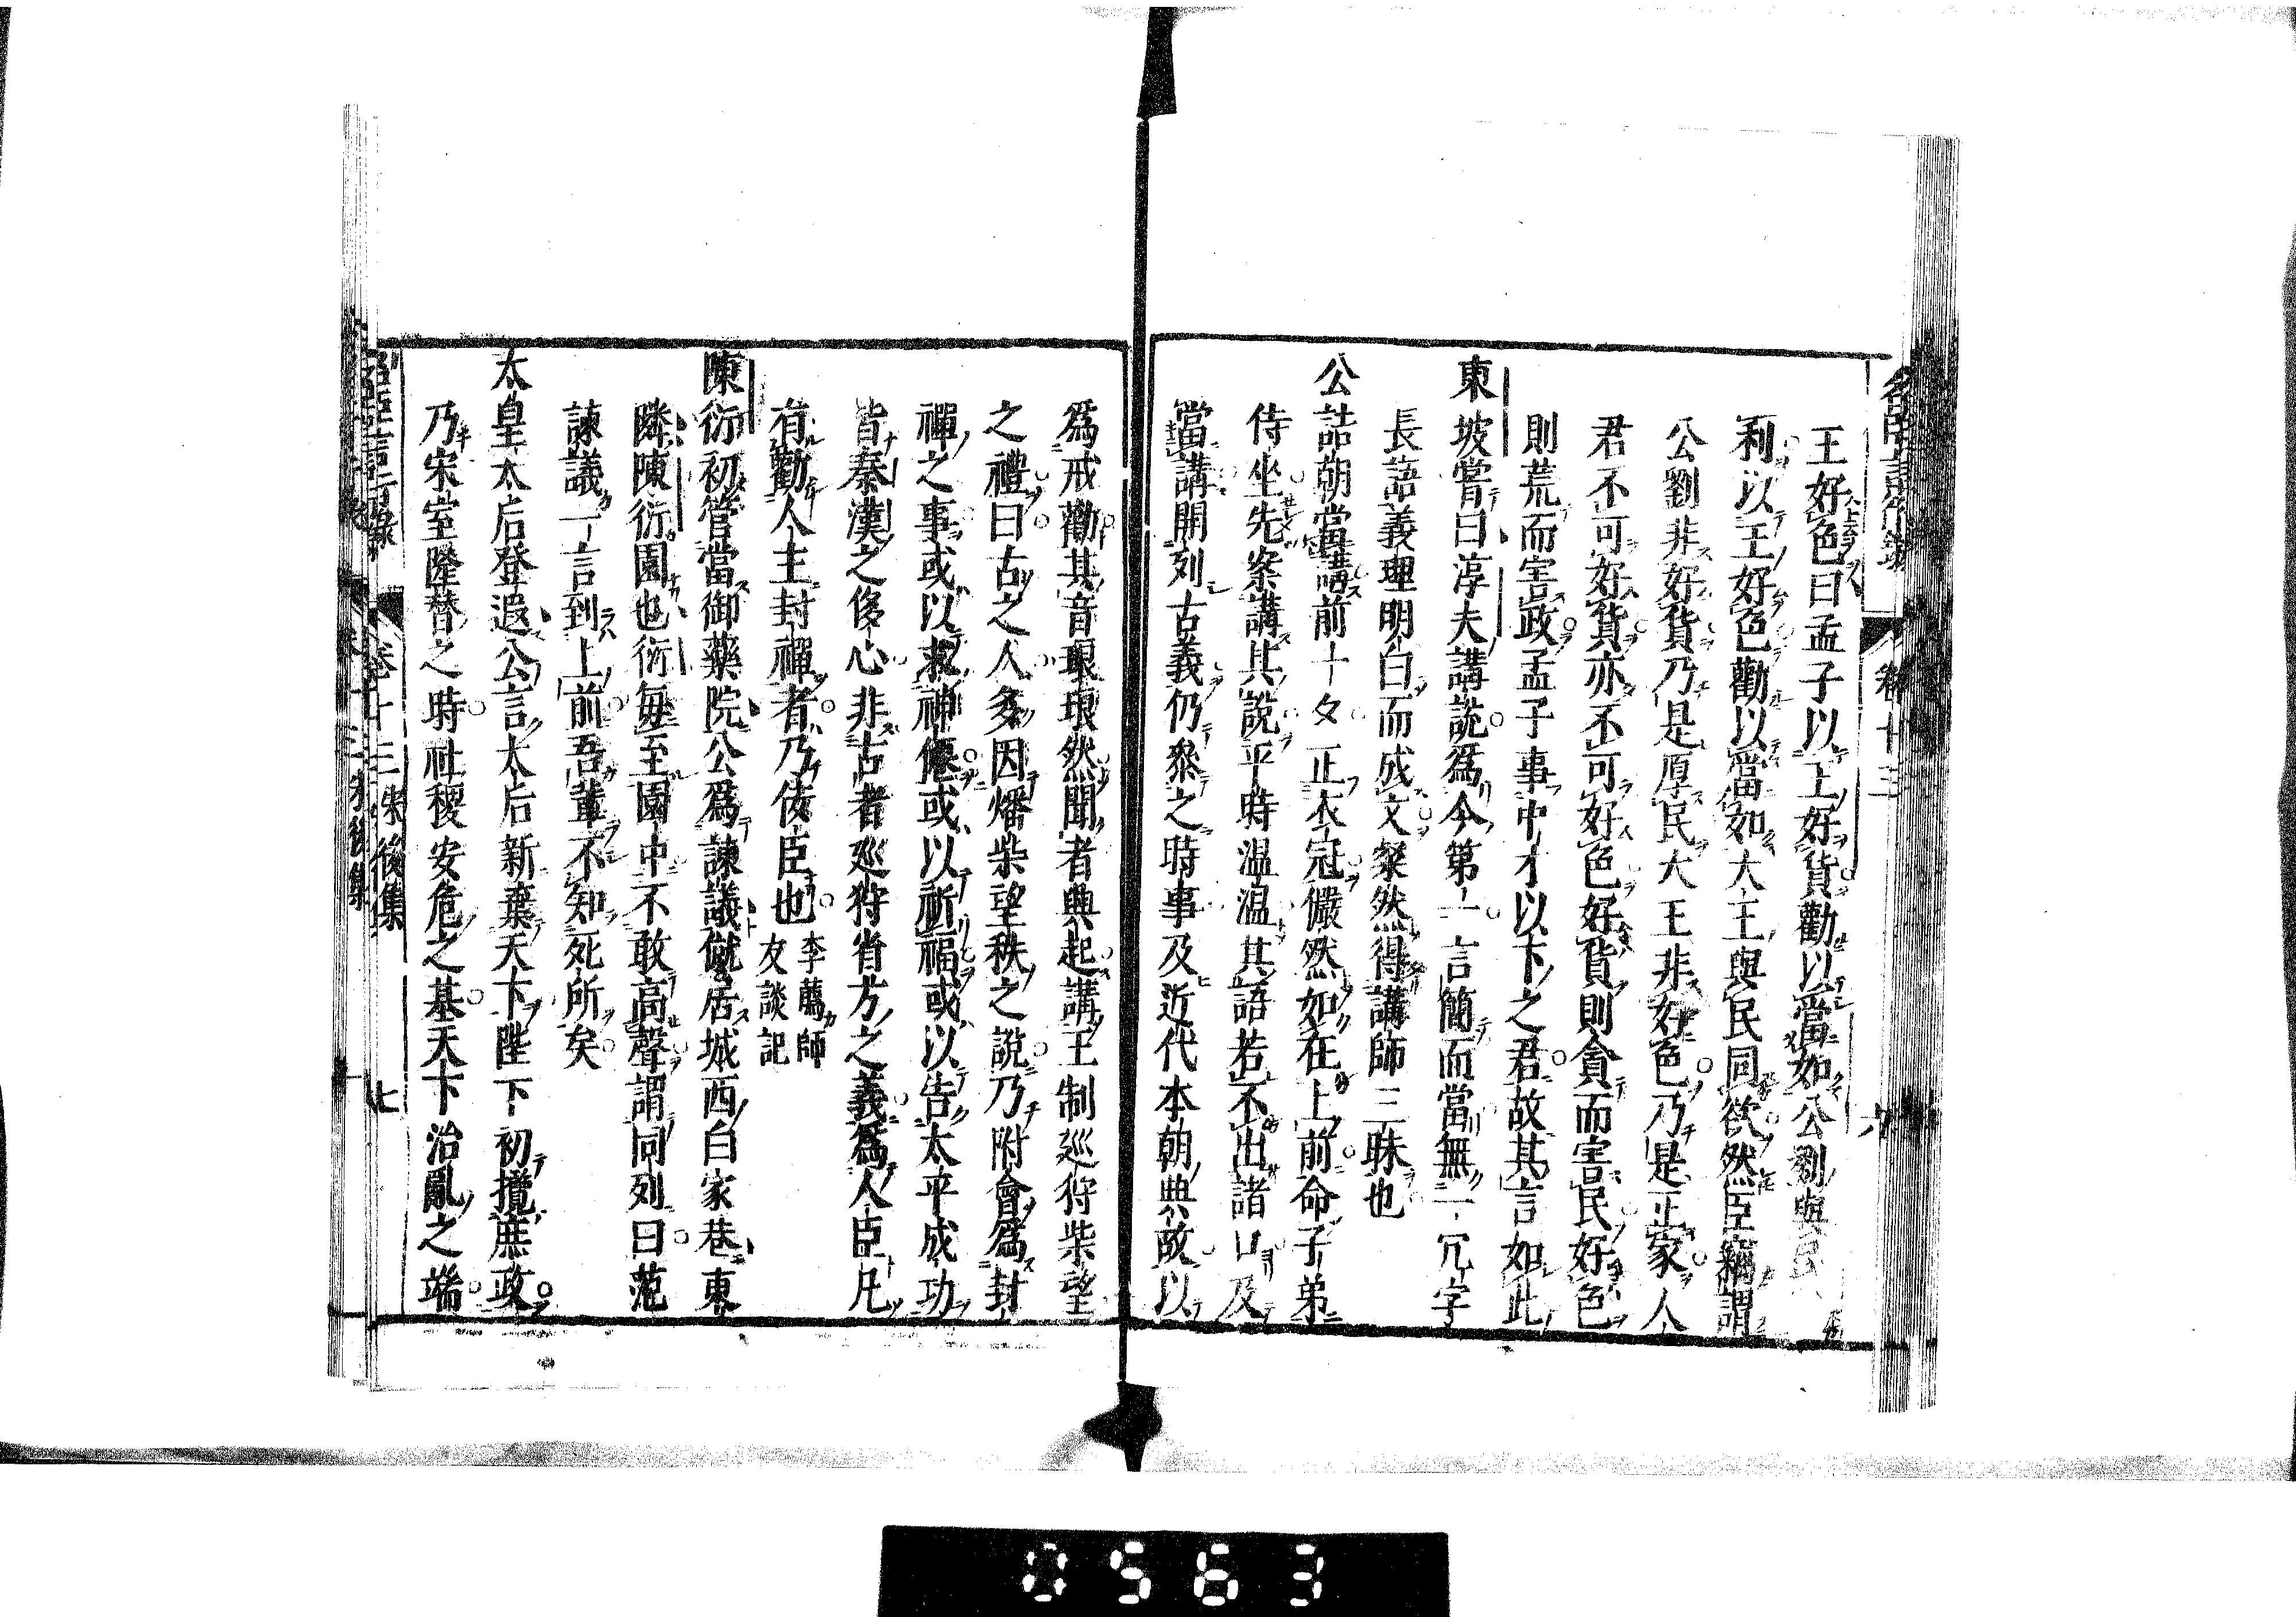 王好色曰孟子以王好貨勸以當如公劉與民
利以王好色勸以當如大王與民同欲然臣竊謂
公劉非好貨乃是厚民大王非好色乃是正家人
君不可好貨亦不可好色好貨則貪而害民好色
則荒而害政孟子事中才以下之君故其言如此
東坡嘗曰淳夫講說爲今第一言簡而當無一冗字
長語義理明白而成文粲然得講師三昧也
公詰朝當講前十夕正衣冠儼然如在上前命子弟
侍坐先案講其說平時温温其語若不出諸口及
當講開列古義仍參之時事及近代本朝典故以
爲戒勸其音琅琅然聞者興起講王制巡狩柴望
之禮曰古之人多因燔柴望秩之說乃附會爲封
禪之事或以求神僊或以祈福或以告太平成功
皆秦漢之侈心非古者巡狩省方之義爲人臣凡
有勸人主封禪者乃佞臣也李廌師友談記
陳衍初管當御藥院公爲諫議僦居城西白家巷東
隣陳衍園也衍每至園中不敢高聲謂同列曰范
諫議一言到上前吾輩不知死所矣
太皇太后登遐公言太后新棄天下陛下初攬庶政
乃宋室隆替之時社稷安危之基天下治亂之端
卷十三
六
卷十三
朱後集
七
0563